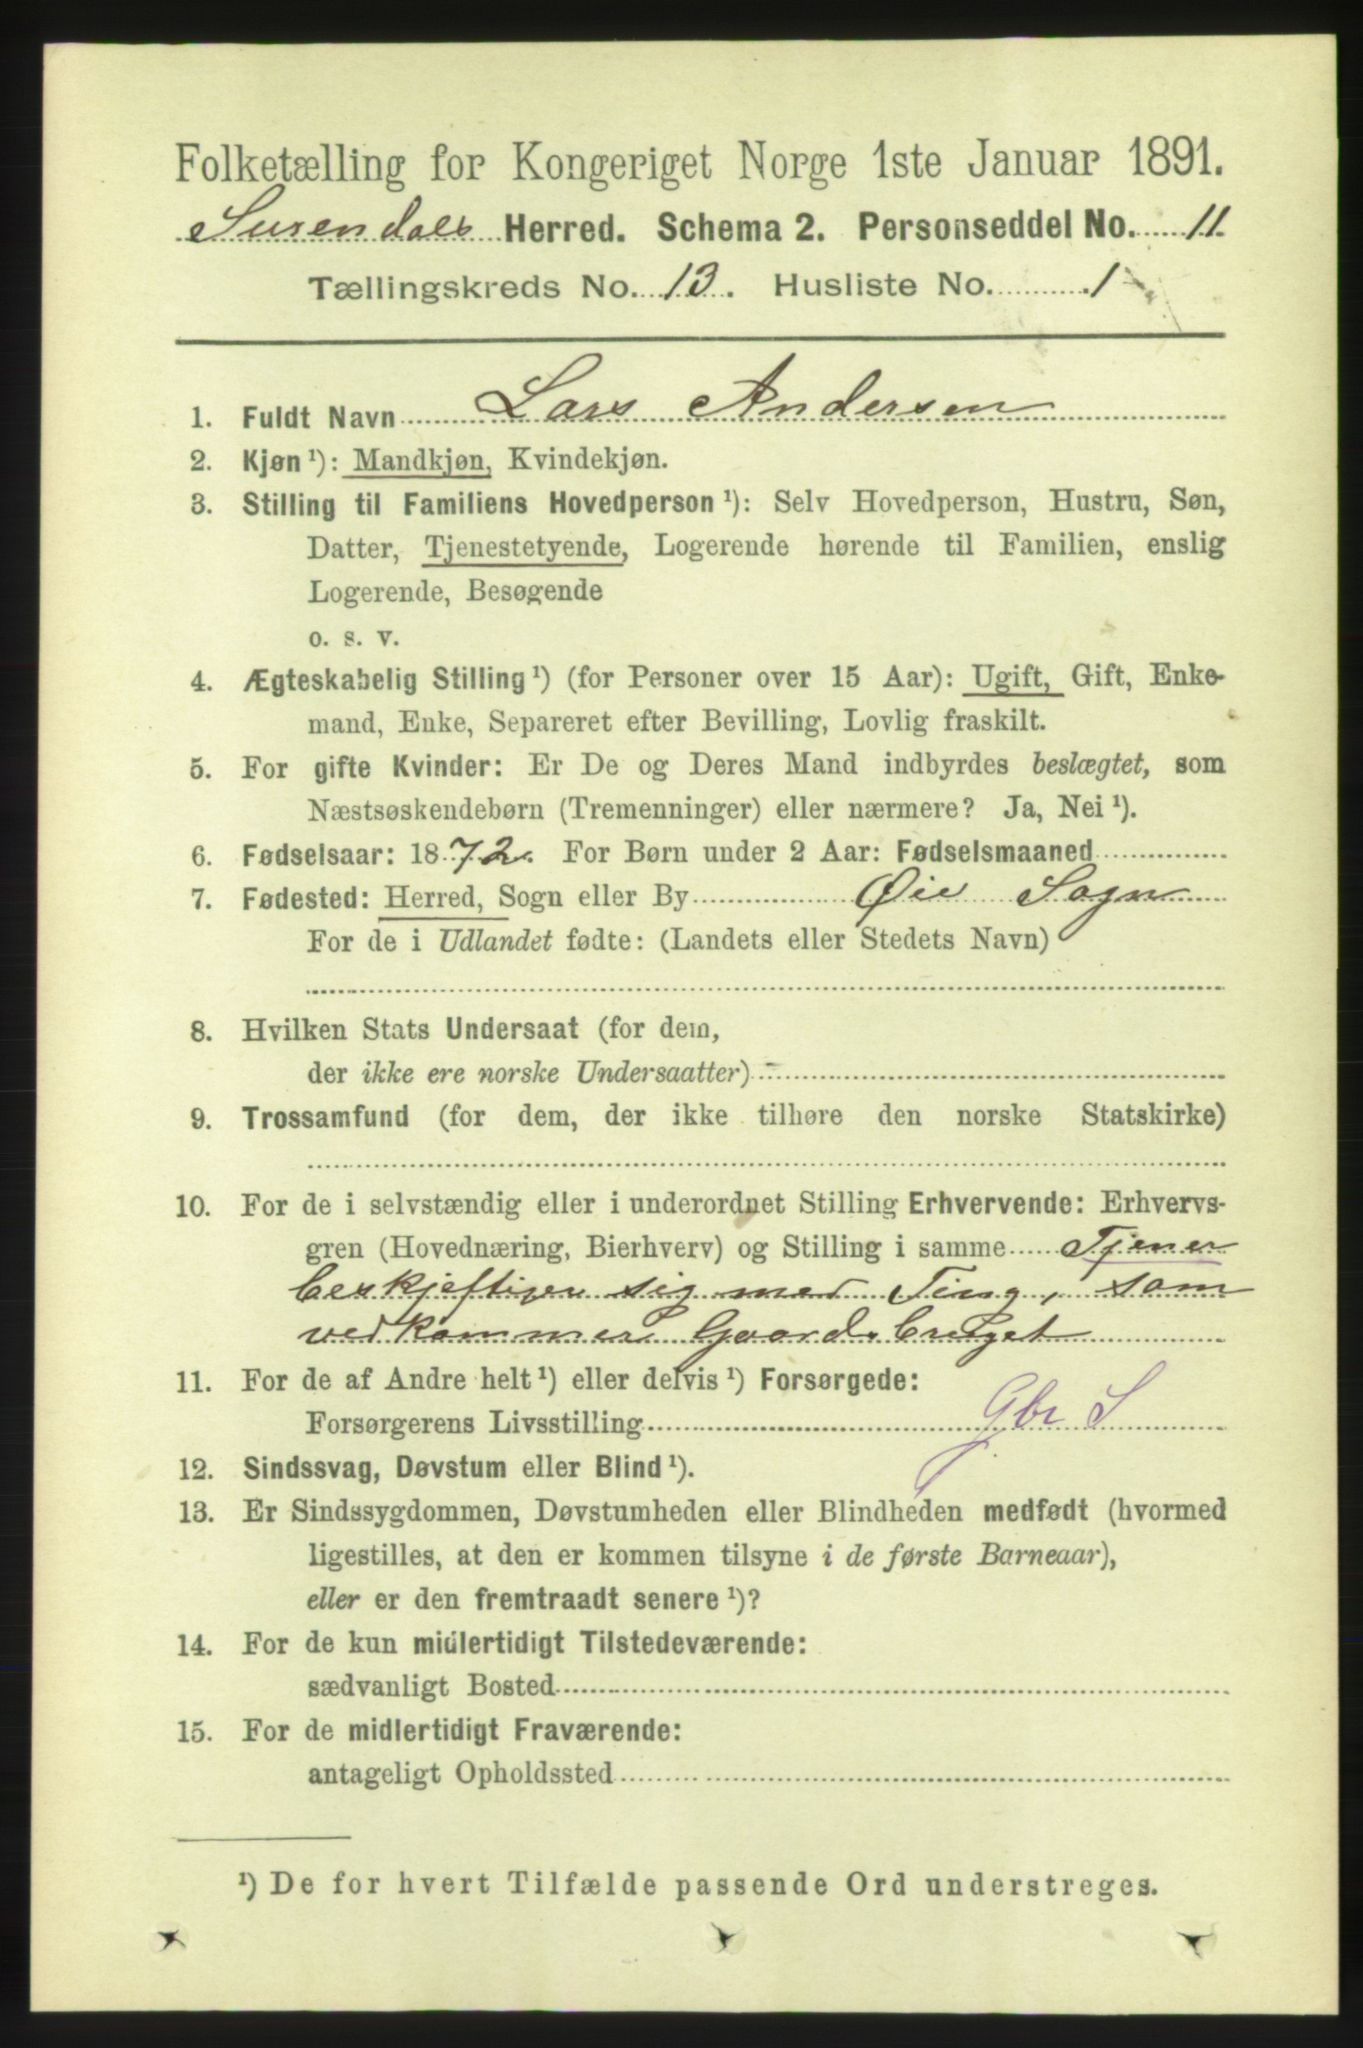 Folketælling for Kongeriget Norge 1ste Januar 1891.
Surendals Herred. Schema 2. Personseddel No. 11.
Tællingskreds No. 13. Husliste No. 1
1. Fuldt Navn Lars Andersen
2. Kjøn ¹): Mandkjøn, Kvindekjøn.
3. Stilling til Familiens Hovedperson ¹): Selv Hovedperson, Hustru, Søn,
Datter, Tjenestetyende, Logerende hørende til Familien, enslig
Logerende, Besøgende
o. s. v.
4. Ægteskabelig Stilling ¹) (for Personer over 15 Aar): Ugift, Gift, Enke-
mand, Enke, Separeret efter Bevilling, Lovlig fraskilt.
5. For gifte Kvinder: Er De og Deres Mand indbyrdes beslægtet, som
Næstsøskendebørn (Tremenninger) eller nærmere? Ja, Nei ¹).
6. Fødselsaar: 1872. For Børn under 2 Aar: Fødselsmaaned
7. Fødested: Herred, Sogn eller By Øie Sogn
For de i Udlandet fødte: (Landets eller Stedets Navn)
8. Hvilken Stats Undersaat (for dem,
der ikke ere norske Undersaatter)
9. Trossamfund (for dem, der ikke tilhøre den norske Statskirke)
10. For de i selvstændig eller i underordnet Stilling Erhvervende: Erhvervs-
gren (Hovednæring, Bierhverv) og Stilling i samme Tjener
beskjeftiger sig med Ting, som
vedkommer Gaardsbruget
11. For de af Andre helt ¹) eller delvis ¹) Forsørgede:
Forsørgerens Livsstilling Gbr S
12. Sindssvag, Døvstum eller Blind ¹).
13. Er Sindssygdommen, Døvstumheden eller Blindheden medfødt (hvormed
ligestilles, at den er kommen tilsyne i de første Barneaar),
eller er den fremtraadt senere ¹)?
14. For de kun midlertidigt Tilstedeværende:
sædvanligt Bosted
15. For de midlertidigt Fraværende:
antageligt Opholdssted
¹) De for hvert Tilfælde passende Ord understreges.